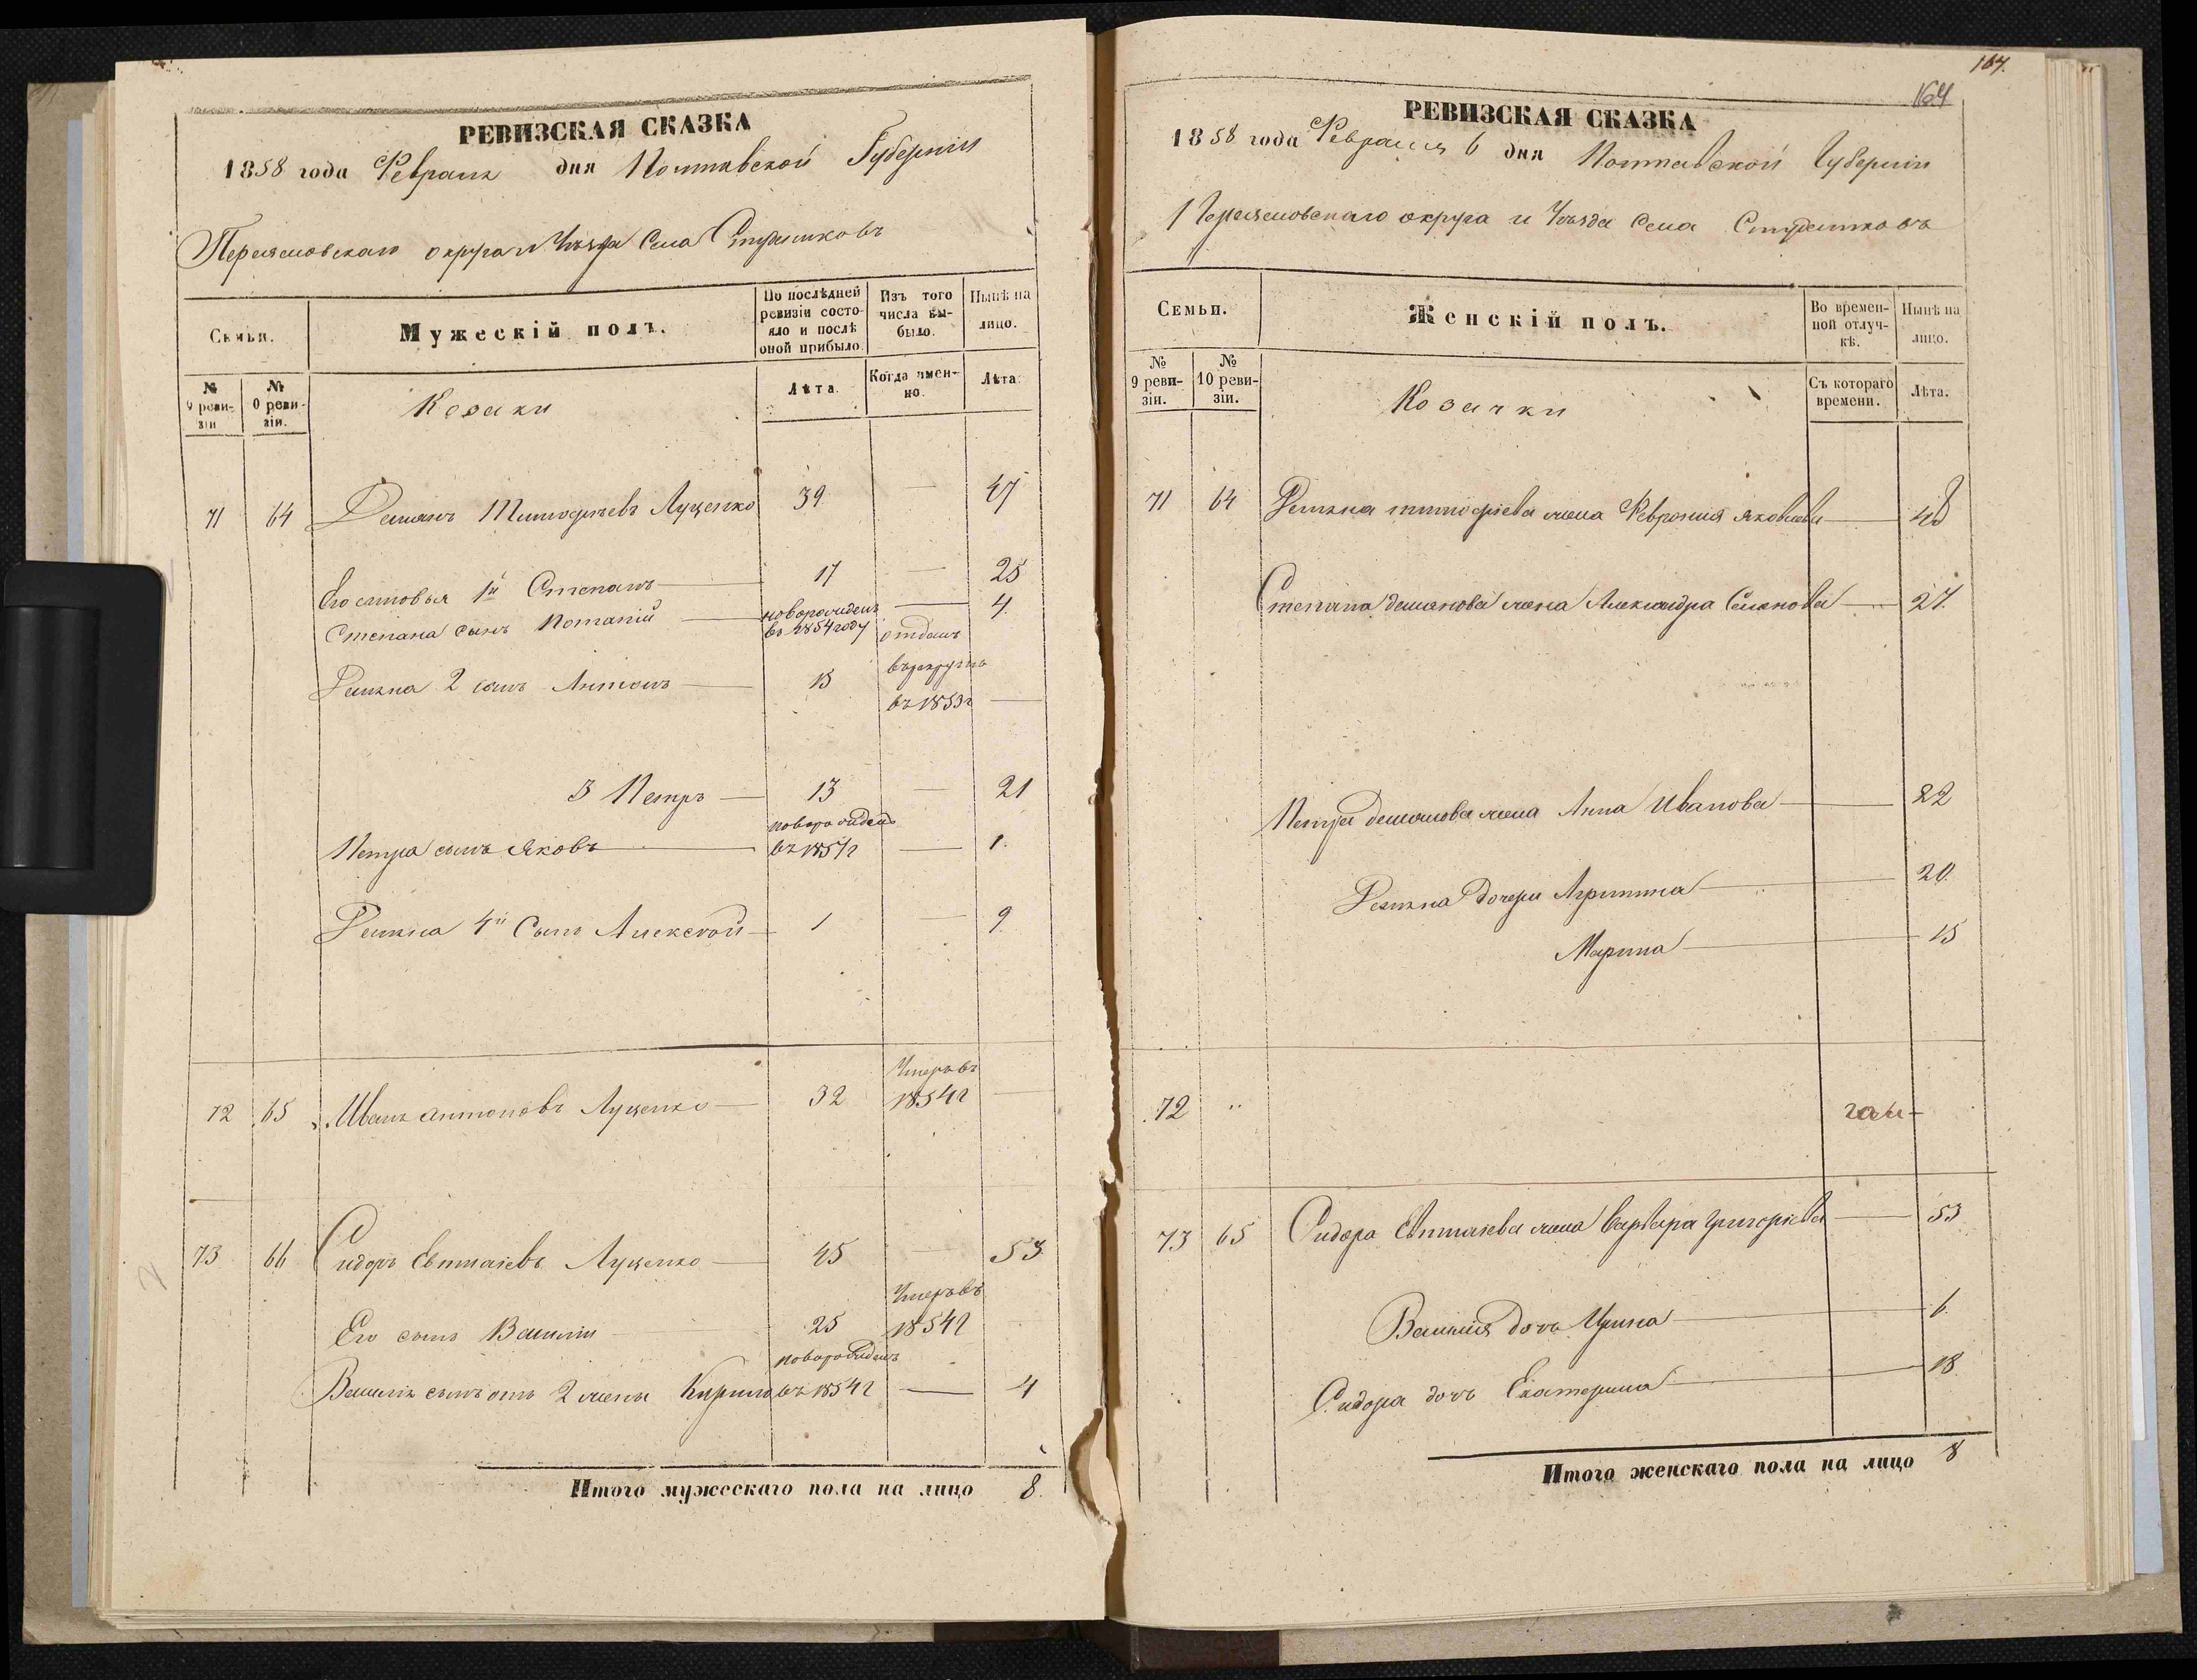 РЕВИЗСКАЯ СКАЗКА
1858 года Февраля дня Полтавской Губерніи
Переяславскаго округа и Уѣзда Села Студениковъ
Семьи.
Мужескій полъ.
По послѣдней ревизіи состояло и послѣ оной прибыло.
Изъ того числа выбыло.
Нынѣ на лицо.
№ 9 ревизіи
№ 10 ревизіи.
Козаки
Лѣта.
Когда именно.
Лѣта.
71 64 Демянъ Тимофѣевъ Луценко 39 — 47
Его сыновья 1й Степанъ 17 — 25
Степана сынъ Потапій новорожденъ въ 1854 году — 4
Демяна 2 сынъ Антонъ 15 отданъ въ рекруты въ 1853г —
3 Петръ 13 — 21
Петра сынъ Яковъ новорожденъ въ 1857г — 1
Демяна 4й Сынъ Алексѣй 1 — 9
72 65 Иванъ Антоновъ Луценко 32 Умеръ въ 1854г —
73 66 Сидоръ Евтихіевъ Луценко 45 — 53
Его сынъ Василій 25 Умеръ въ 1854г
Василія сынъ отъ 2 жены Кирило новорожденъ въ 1854г — 4
Итого мужескаго пола на лицо 8.
167.
164
РЕВИЗСКАЯ СКАЗКА
1858 года Февраля 6 дня Полтавской Губерніи
Переяславскаго округа и Уѣзда Села Студениковъ
Семьи.
Женскій полъ.
Во временной отлучкѣ.
Нынѣ на лицо.
№ 9 ревизіи.
№ 10 ревизіи.
Козачки
Съ котораго времени.
Лѣта.
71 64 Демяна Тимофіева жена Февронія Яковлева 48
Степана Демянова жена Александра Семенова 27.
Петра Демянова жена Анна Иванова 22
Демяна дочери Агрипина 20.
Марина 15
72 "
73 65 Сидора Евтихіева жена Варвара Григоріева 53
Василія дочь Ирина 6.
Сидора дочь Екатерина 18.
Итого женскаго пола на лицо 8